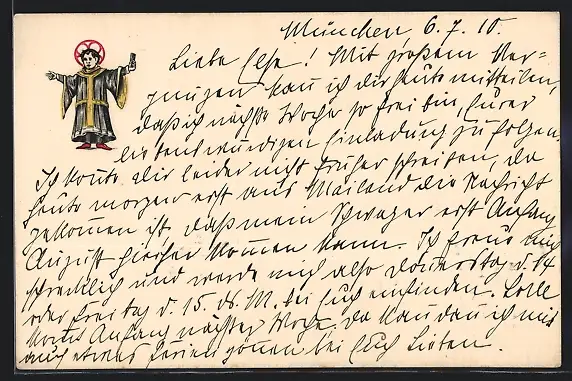 München, 6.7.10.
Liebe Else! Mit großem Ver-
gnügen kann ich dir heute mitteilen,
daß ich nächste Woche so frei bin, Eurer
liebenswürdigen Einladung zu folgen.
Ich konnte Dir leider nicht früher schreiben, da
heute morgen erst aus Mailand die Nachricht
gekommen ist, daß mein Schwager erst Anfang
August hierher kommen kann. Ich freue mich
schrecklich und werde mich also Donnerstag d. 14
oder Freitag d. 15. ds. M. bei Euch einfinden.
Anfang nächster Woche. Da kann dann ich mir
auch etwas Ferien gönnen bei Euch Lieben.